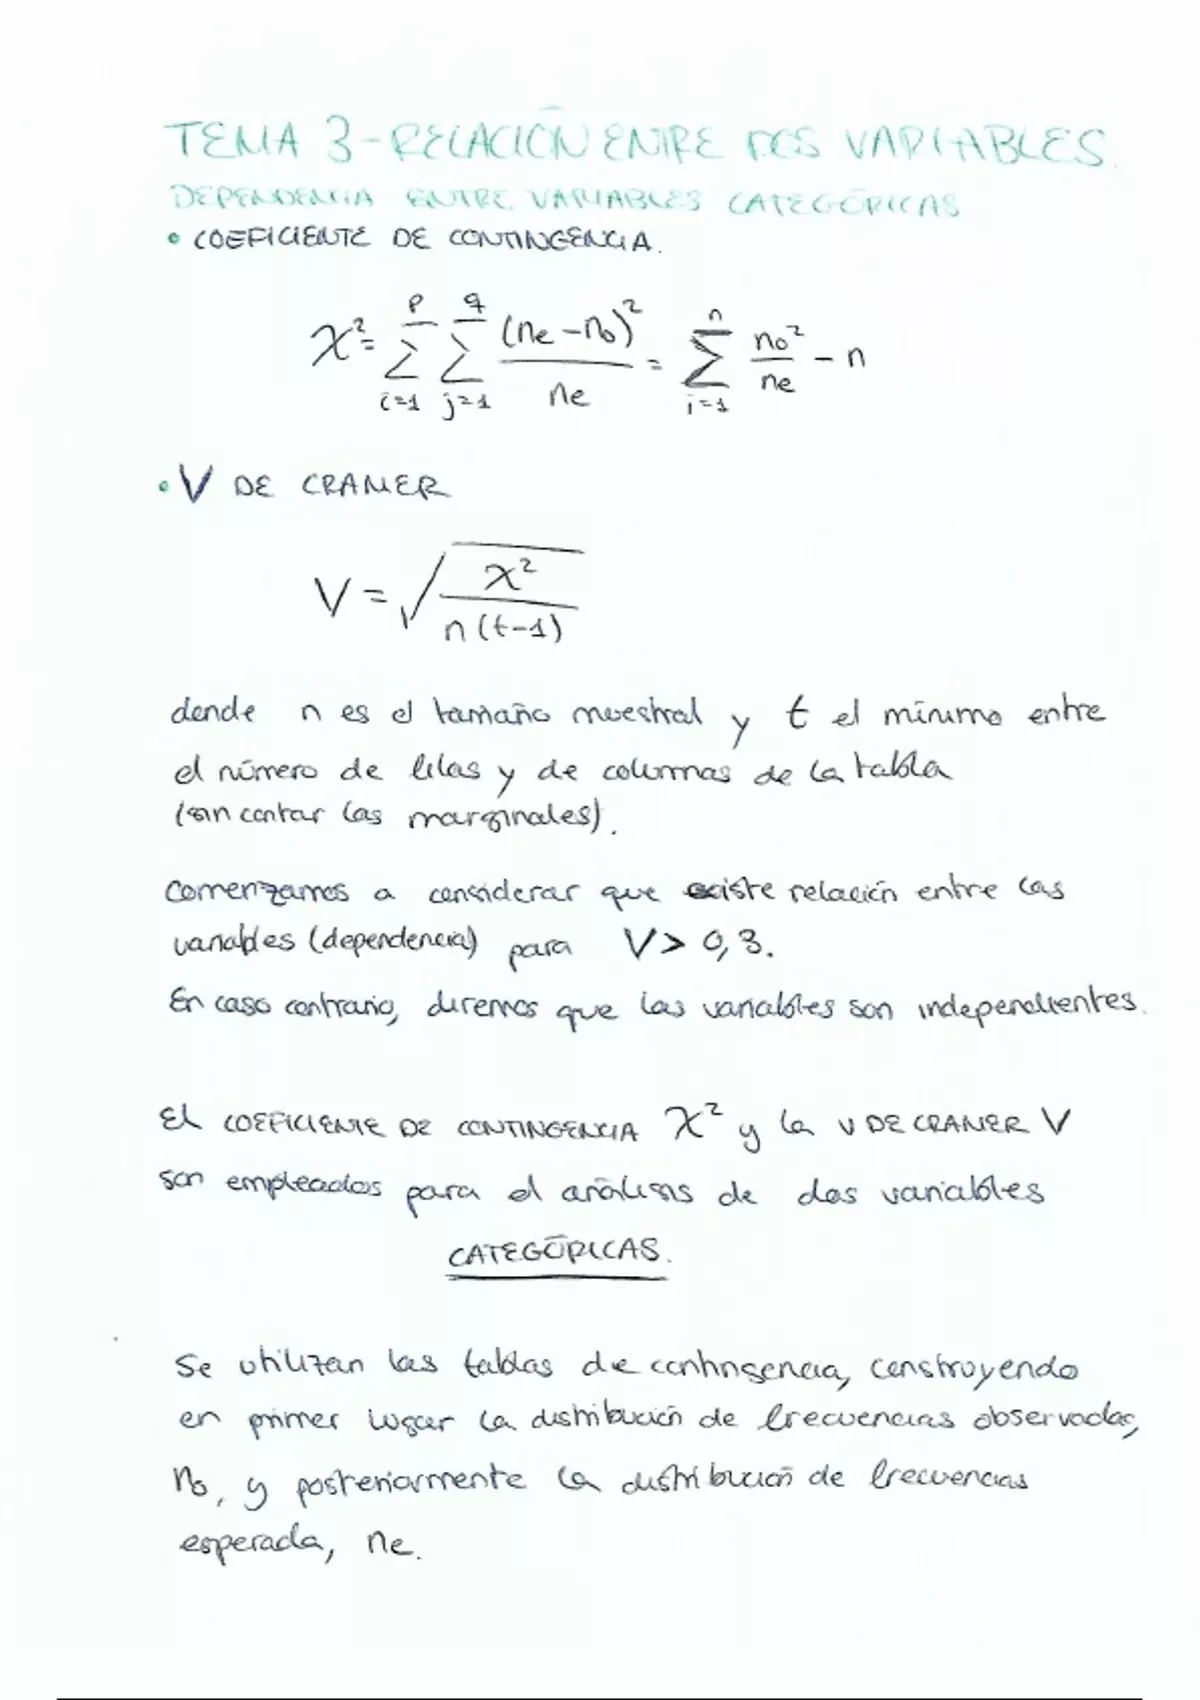 TEMA 3 - RELACIÓN ENTRE DOS VARIABLES.
DEPENDENCIA ENTRE VARIABLES CATEGÓRICAS
• COEFICIENTE DE CONTINGENCIA.
χ² = ∑_{i=1}^{p} ∑_{j=1}^{q} (ne - no)² / ne = ∑_{i=1}^{n} no² / ne - n
• V DE CRAMER
V = √(χ² / n(t-1))
donde n es el tamaño muestral y t el mínimo entre
el número de filas y de columnas de la tabla
(sin contar las marginales).
Comenzamos a considerar que existe relación entre las
variables (dependencia) para V > 0,3.
En caso contrario, diremos que las variables son independientes.
El COEFICIENTE DE CONTINGENCIA χ² y la V DE CRAMER V
son empleados para el análisis de dos variables
CATEGÓRICAS.
Se utilizan las tablas de contingencia, construyendo
en primer lugar la distribución de frecuencias observadas,
no, y posteriormente la distribución de frecuencias
esperada, ne.